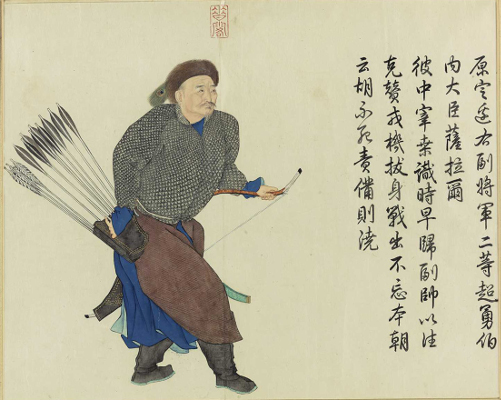 原定邊右副將軍二等超勇伯
內大臣薩拉爾
彼中宰桑識時早歸副帥以往
克贊戎機拔身戰出不忘本朝
云胡不死責備則澆